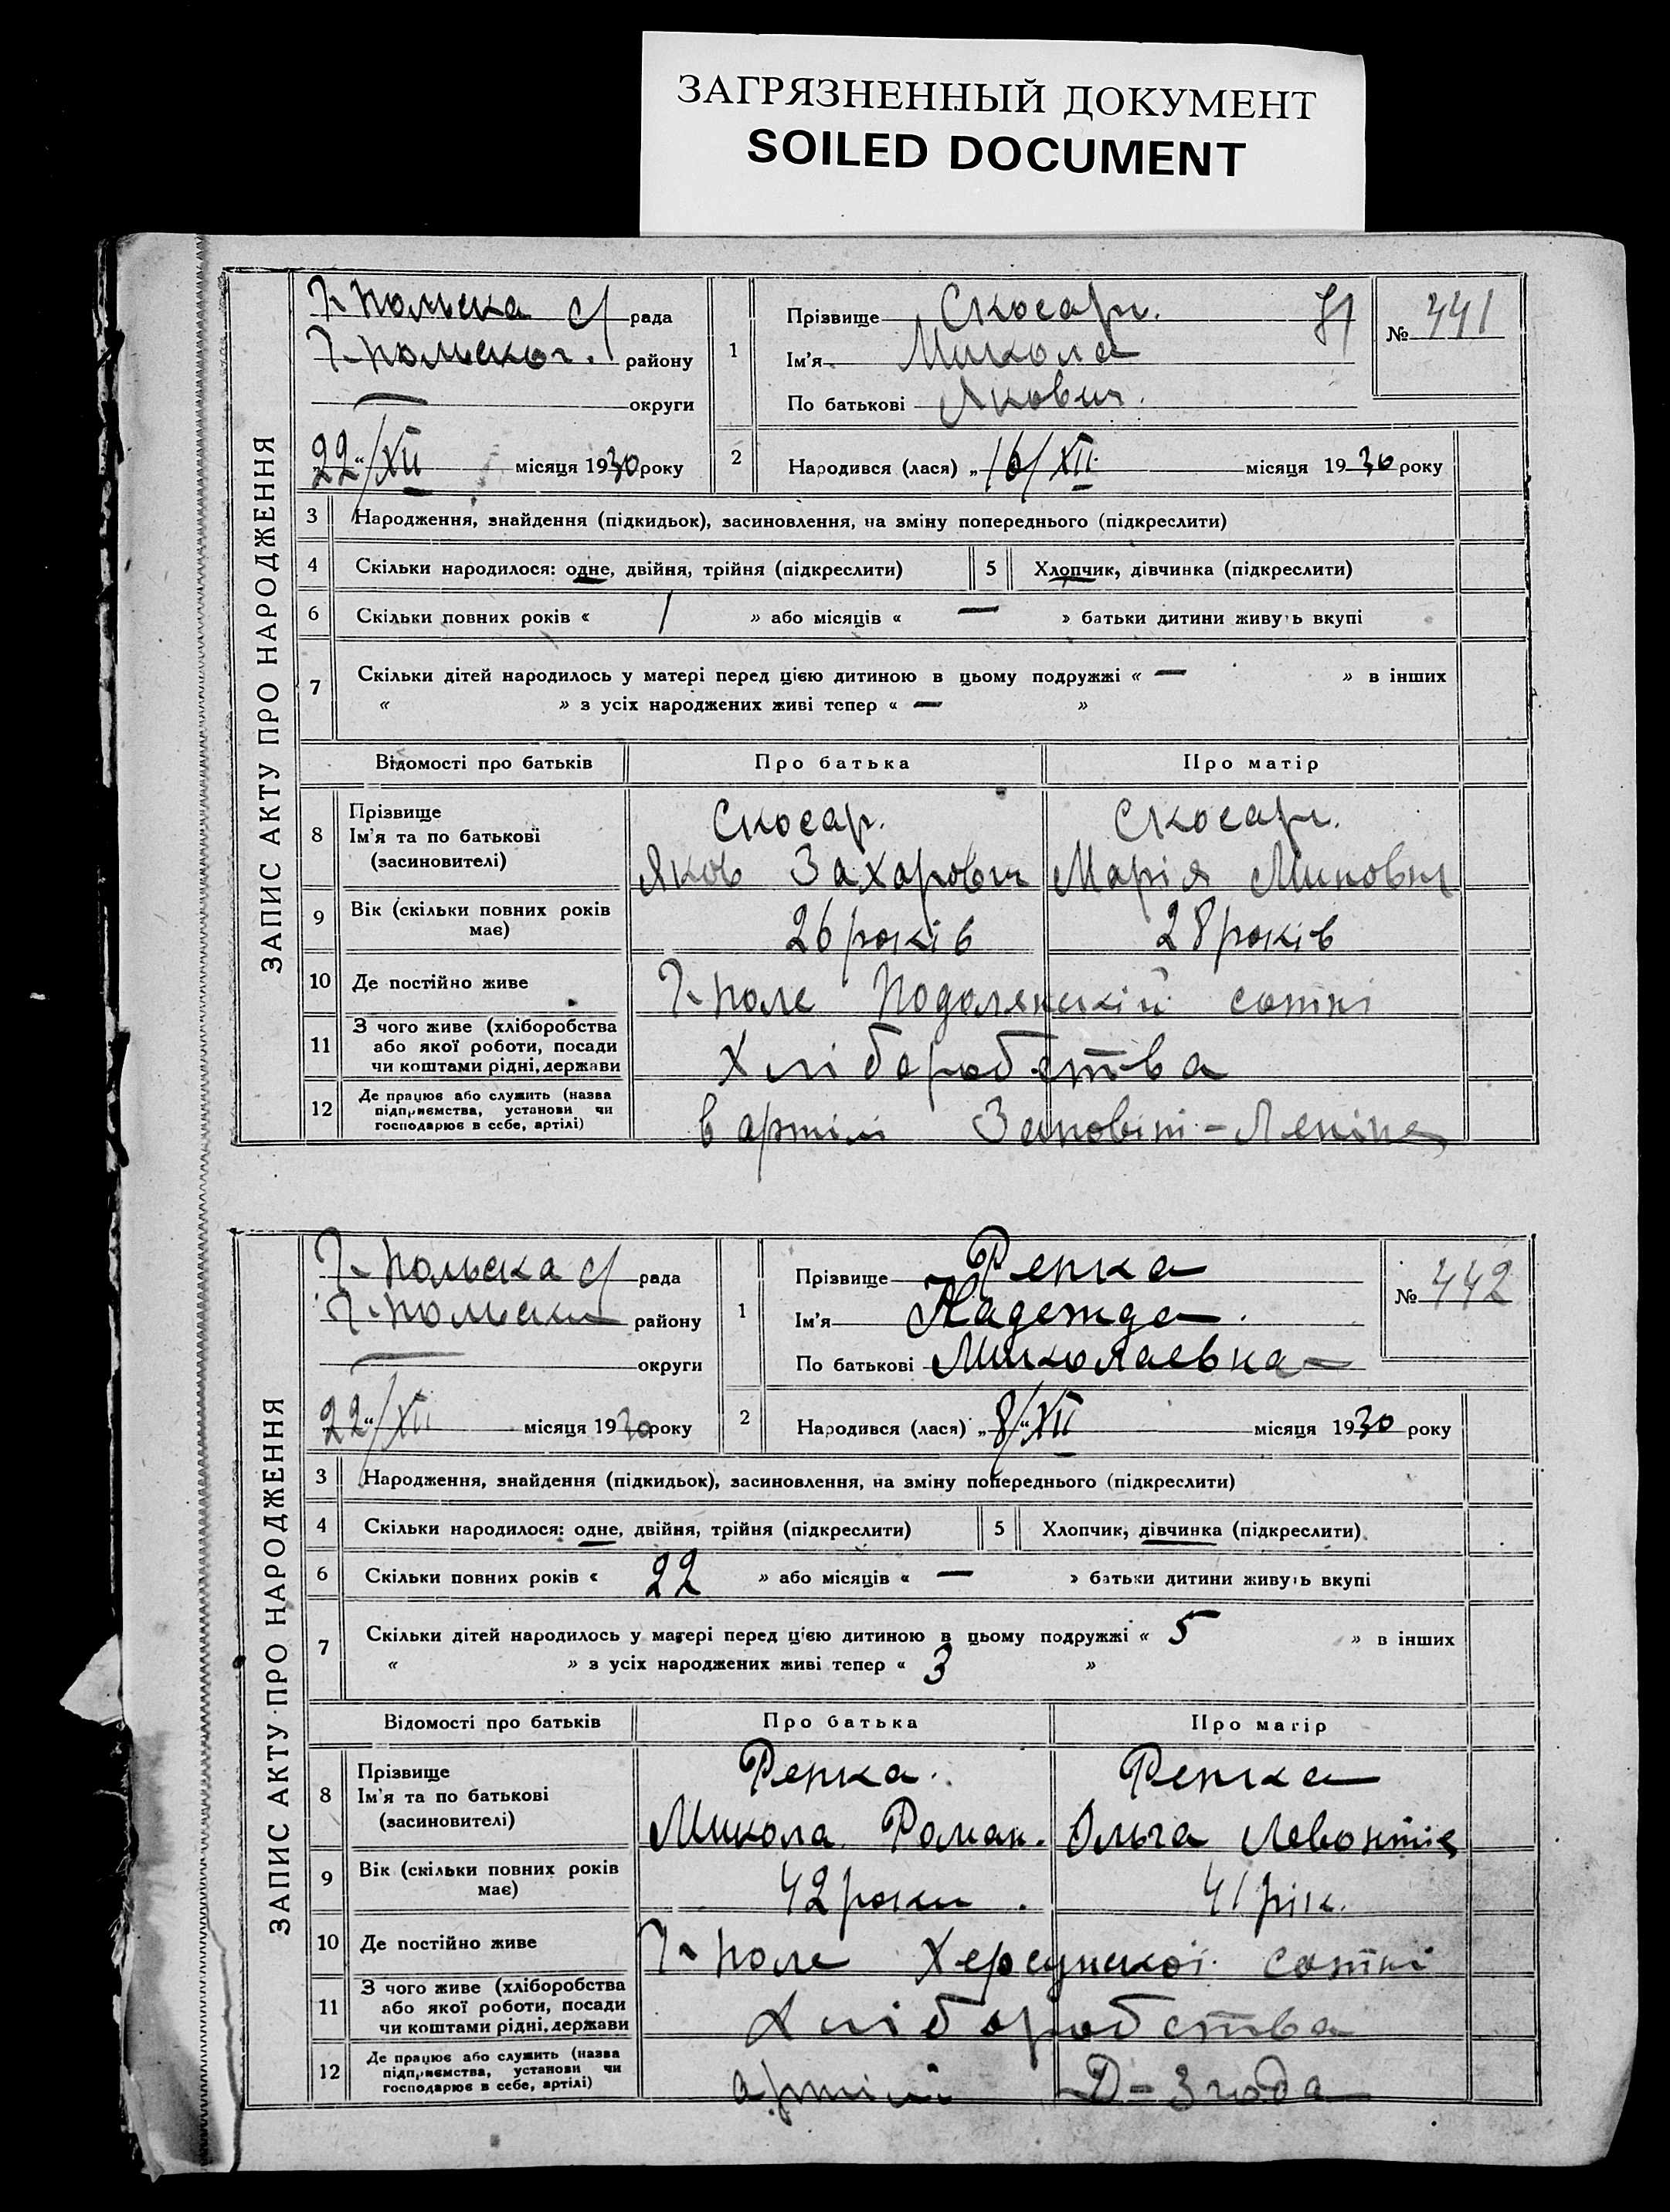 ЗАГРЯЗНЕННЫЙ ДОКУМЕНТ
SOILED DOCUMENT
ЗАПИС АКТУ ПРО НАРОДЖЕННЯ
Г-Польска с/рада
Г-Польског. району
— округи
„22“/XII місяця 1930 року
1 Прізвище Скосарь.
Ім'я Микола
По батькові Якович.
№ 441
2 Народився (лася) „16/XII місяця 1930 року
3 Народження, знайдення (підкидьок), засиновлення, на зміну попереднього (підкреслити)
4 Скільки народилося: одне, двійня, трійня (підкреслити) 5 Хлопчик, дівчинка (підкреслити)
6 Скільки повних років « 1 » або місяців « — » батьки дитини живуть вкупі
7 Скільки дітей народилось у матері перед цією дитиною в цьому подружжі « — » в інших
« » з усіх народжених живі тепер « — »
Відомості про батьків Про батька Про матір
8 Прізвище
Ім'я та по батькові
(засиновителі)
Скосар. Скосарь.
Яков Захарович Марія Минович
9 Вік (скільки повних років
має)
26 років 28 років
10 Де постійно живе Г-Поле Подолянский сотні
11 З чого живе (хліборобства
або якої роботи, посади
чи коштами рідні, держави
Хліборобства
12 Де працює або служить (назва
підприємства, установи чи
господарює в себе, артілі)
в артілі Заповіт-Леніна
ЗАПИС АКТУ ПРО НАРОДЖЕННЯ
Г-Польска с/рада
Г-Польски району
— округи
22“/XII місяця 1930 року
1 Прізвище Репка
Ім'я Надежда.
По батькові Миколаевна
№ 442
2 Народився (лася) „8/“XII місяця 1930 року
3 Народження, знайдення (підкидьок), засиновлення, на зміну попереднього (підкреслити)
4 Скільки народилося: одне, двійня, трійня (підкреслити) 5 Хлопчик, дівчинка (підкреслити)
6 Скільки повних років « 22 » або місяців « — » батьки дитини живуть вкупі
7 Скільки дітей народилось у матері перед цією дитиною в цьому подружжі « 5 » в інших
« » з усіх народжених живі тепер « 3 »
Відомості про батьків Про батька Про матір
8 Прізвище
Ім'я та по батькові
(засиновителі)
Репка. Репка
Микола Роман. Ольга Левонтіє
9 Вік (скільки повних років
має)
42 роки. 41 рік.
10 Де постійно живе Г-Поле Херсунскоі сотні
11 З чого живе (хліборобства
або якої роботи, посади
чи коштами рідні, держави
Хліборобства
12 Де працює або служить (назва
підприємства, установи чи
господарює в себе, артілі)
артілі Д-Згода